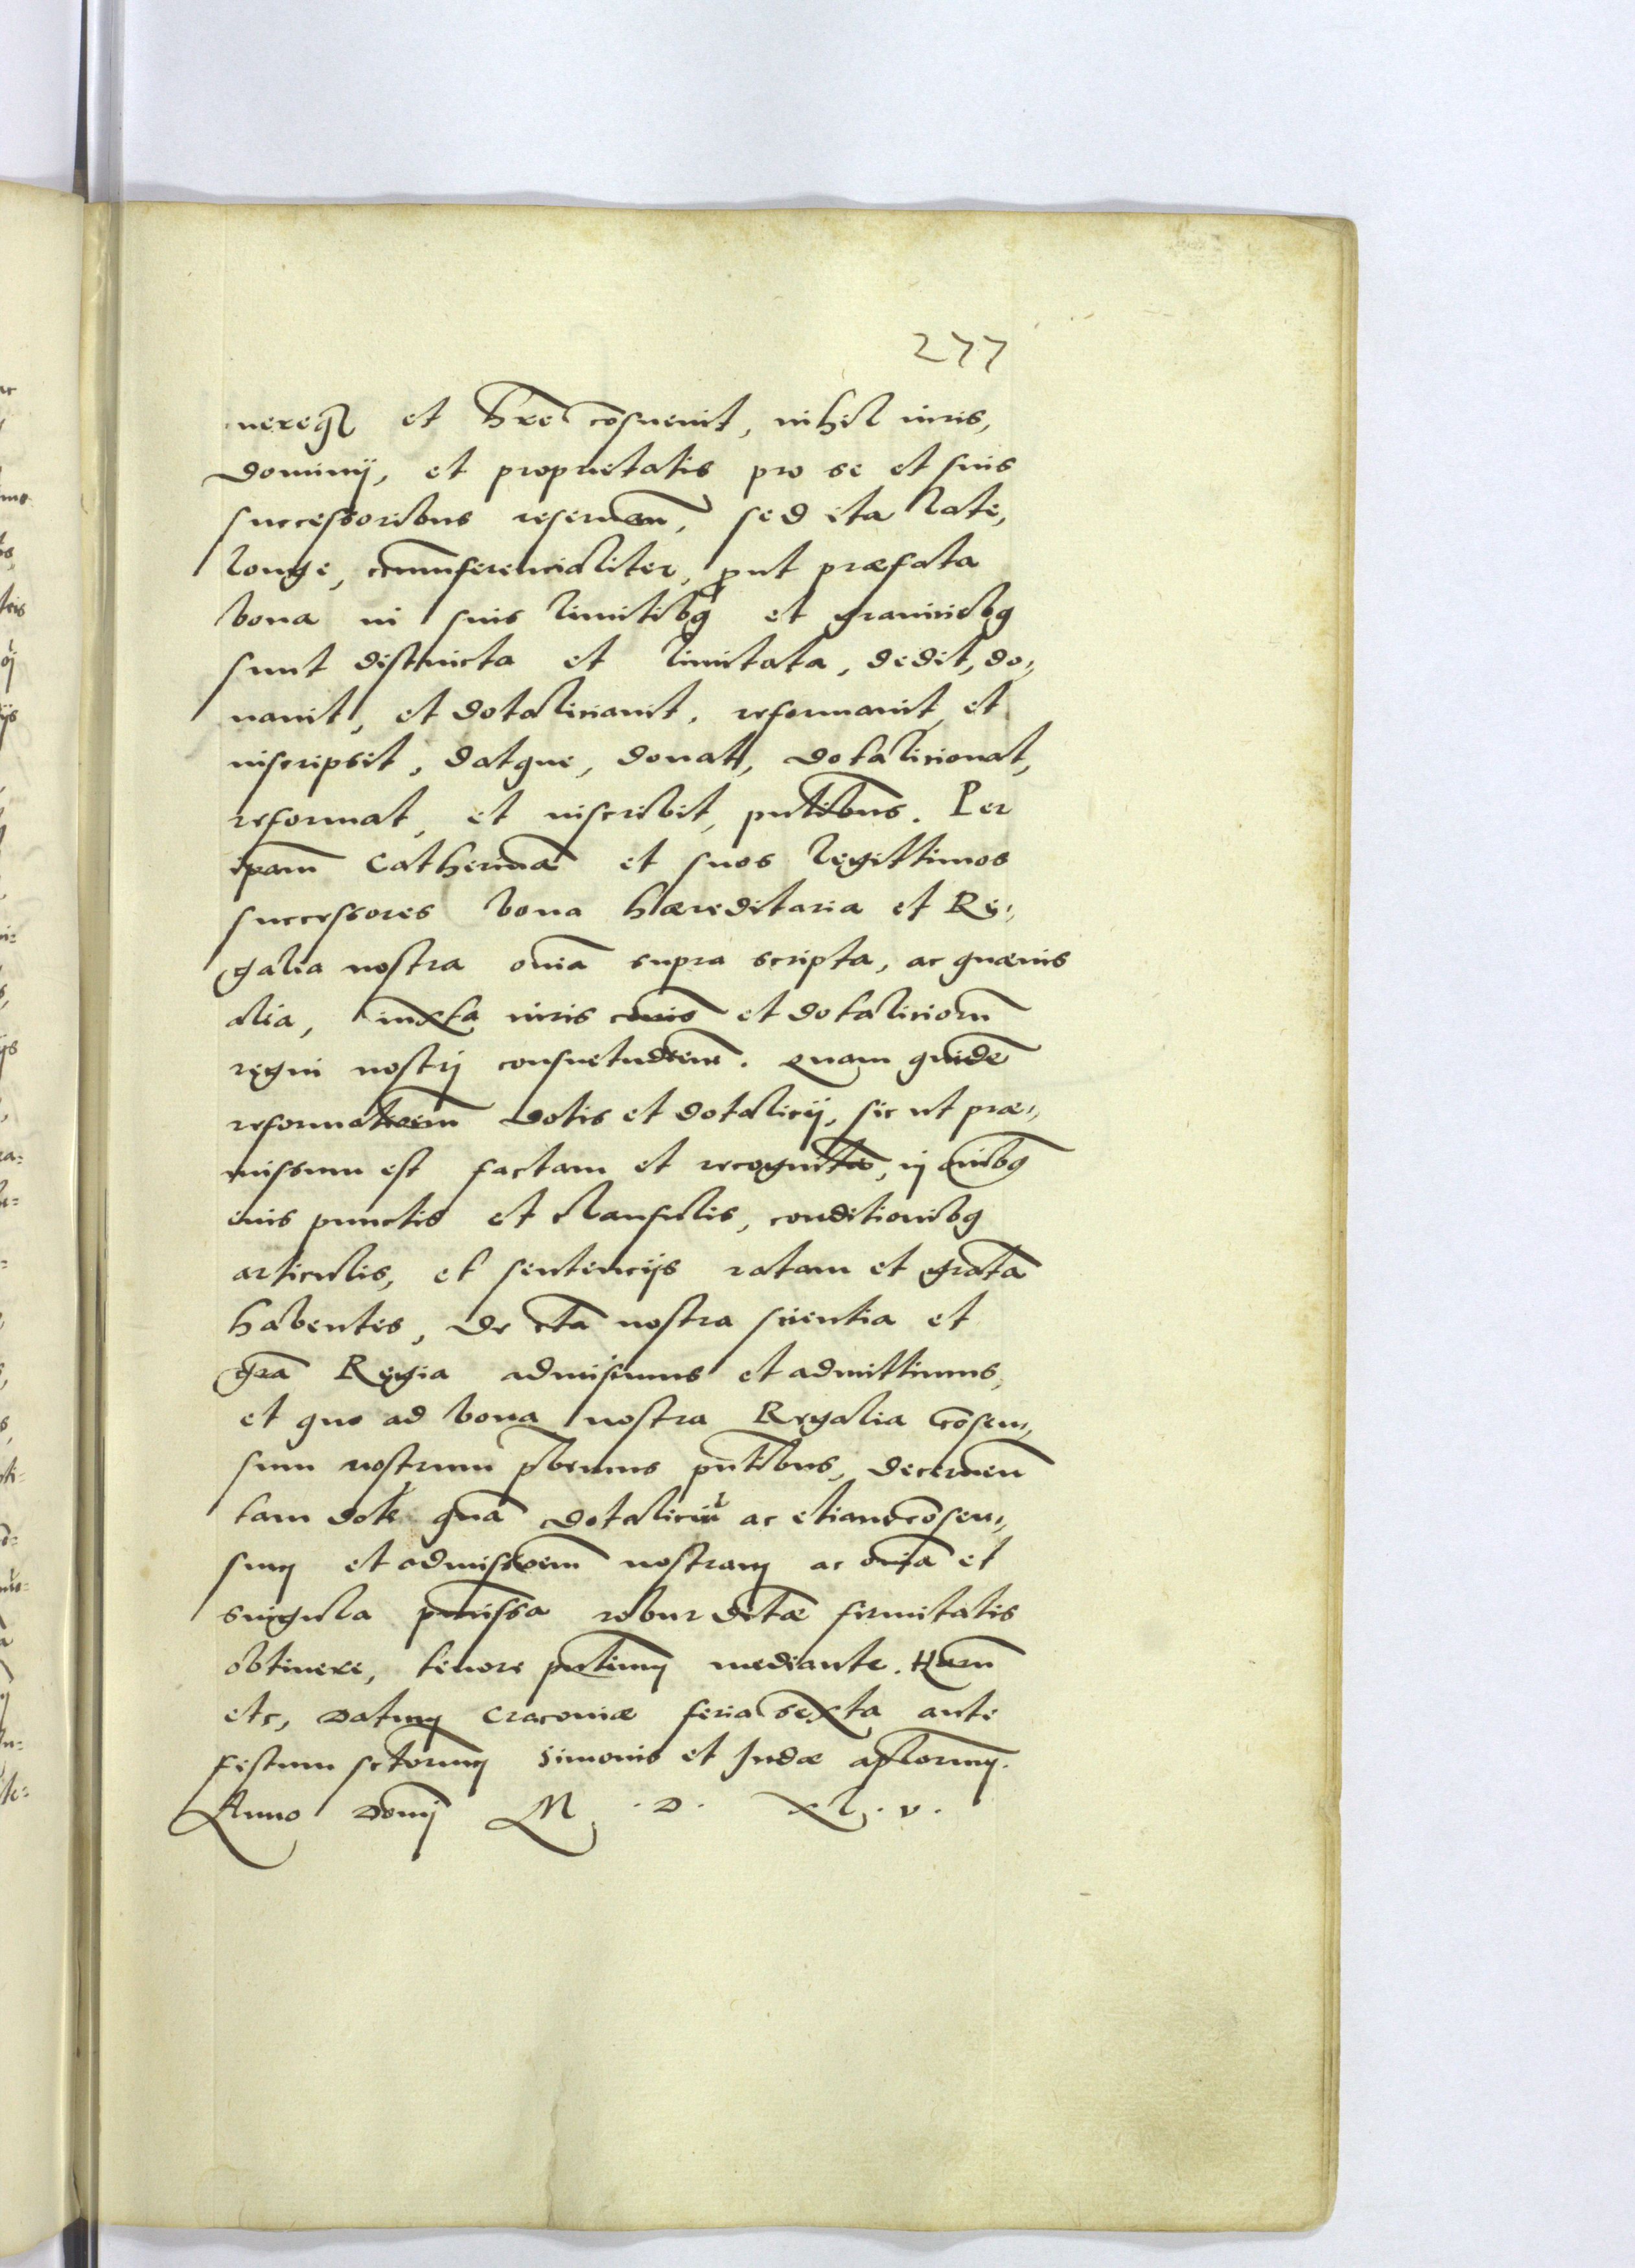 277
nereqз et hrē cōsuevit, nihil iuris,
dominij, et proprietatis pro se et suis
successoribus reseruan̄, sed ita late,
longe, circumferencialiter, ꝓut præfata
bona in suis limitibꝯ et granicibꝯ
sunt distincta et limitata, dedit, do,,
nauit, et dotaliciauit, reformauit et
inscripsit, datque, donat, dotaliciat,
reformat, et inscribit, pn̄tibus. Per
ip̄am Catherinā et suos legittimos
successores bona hæreditaria et Re,,
galia nostra om̄ia supra scripta, ac quævis
alia, iuxta iuris cōis et dotaliciorū
regni nostrj consuetudīem. Quam quidē
reformatōem dotis et dotalicij, sic ut præ,,
missum est factam et recognitā, in om̄ibꝯ
eius punctis et clausulis, conditionibꝯ
articulis, et sentencijs ratam et gratā
habentes, de cta nostra scientia et
grā Regia admisimus et admittimus,
et quo ad bona nostra Regalia cōsen,,
sum nostrum p̄bemus pn̄tibus, decernen̄
tam dotē quā dotaliciū ac etiam cōsen,,
sum et admissiōem nostram ac om̄ia et
singula p̄missa robur debitæ firmitatis
obtinere, tenore pn̄tium mediante. Harū
etc, Datum Cracoviæ feria sexta ante
festum sctorum Simonis et Judæ ap̄lorum.
Anno Domj M . D . XL . V .